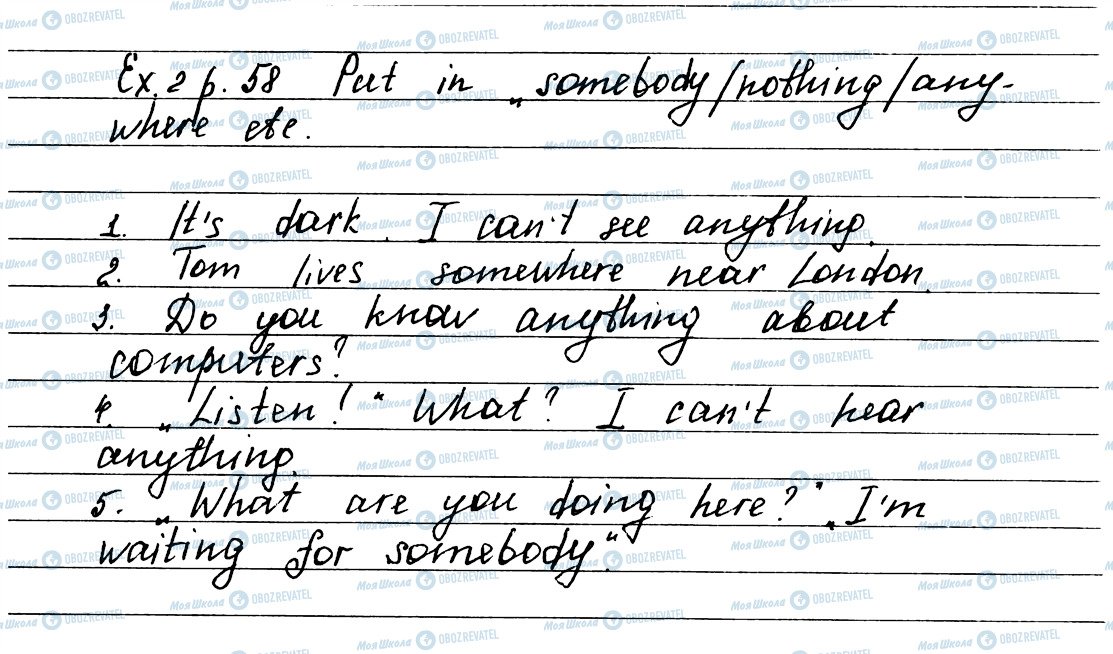 Ex. 2 p. 58 Put in „somebody/nothing/any-
where etc.
1. It's dark. I can't see anything.
2. Tom lives somewhere near London.
3. Do you know anything about
computers?
4. „Listen!" What? I can't hear
anything.
5. „What are you doing here?" „I'm
waiting for somebody."
Моя Школа OBOZREVATEL